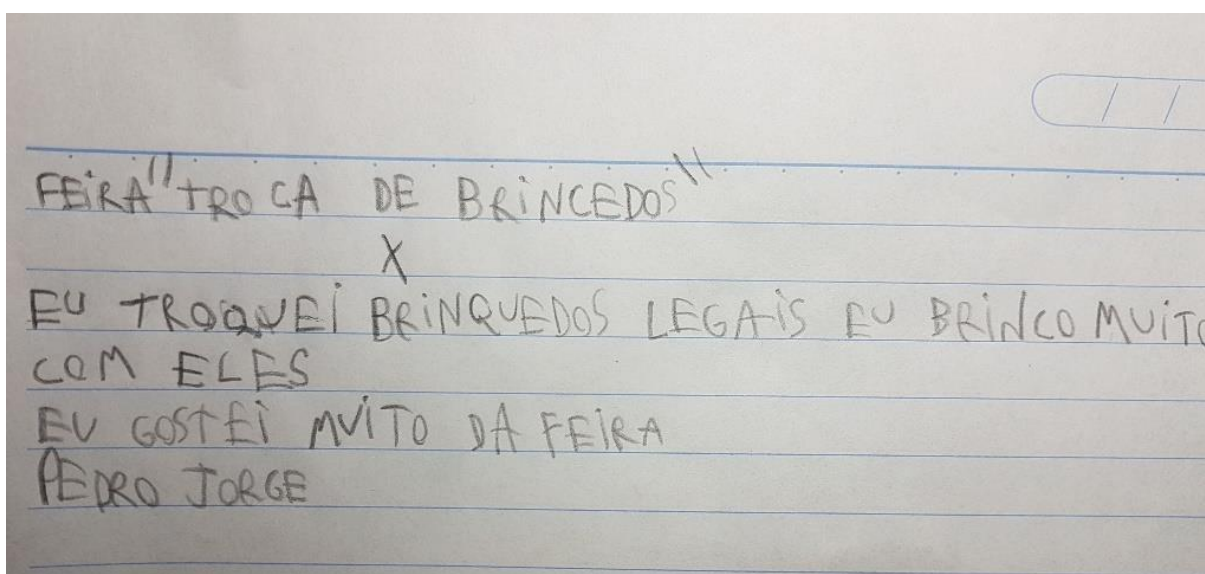 FEiRA "TROCA DE BRiNCEDOS"
X
EU TROQUEi BRiNQUEDOS LEGAiS EU BRiNCO MUiTO
COM ELES
EU GOSTEi MUiTO DA FEiRA
PEDRO JORGE